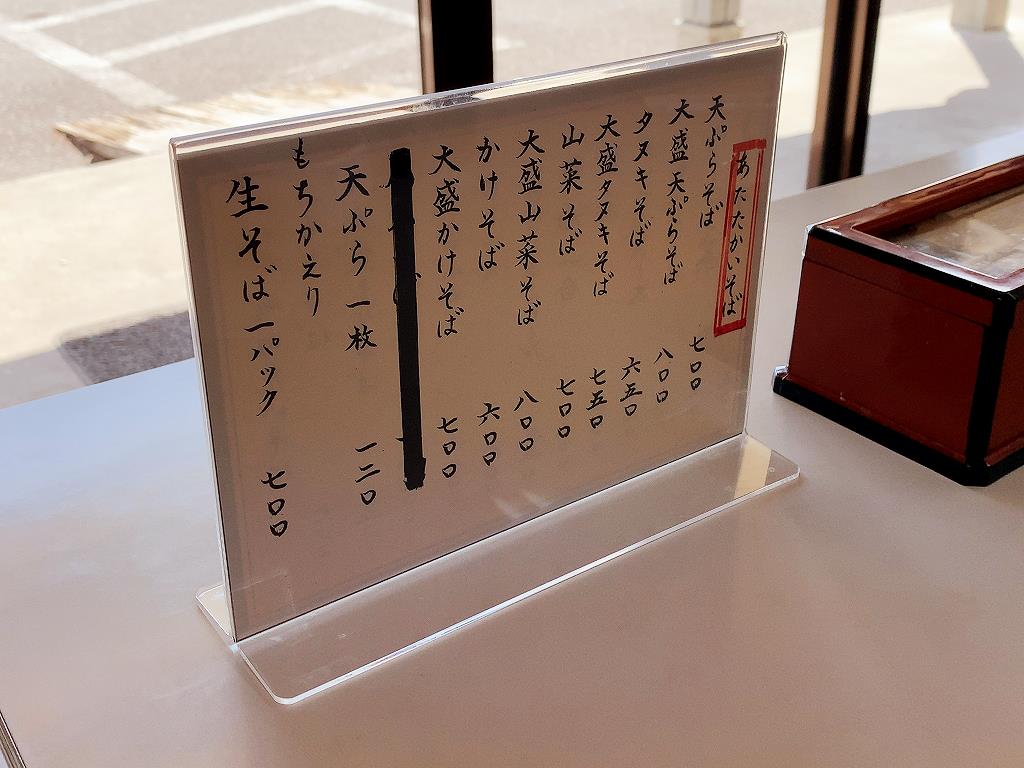 あたたかいそば
天ぷらそば 七〇〇
大盛天ぷらそば 八〇〇
タヌキそば 六五〇
大盛タヌキそば 七五〇
山菜そば 七〇〇
大盛山菜そば 八〇〇
かけそば 六〇〇
大盛かけそば 七〇〇
天ぷら一枚 一二〇
もちかえり
生そば一パック 七〇〇